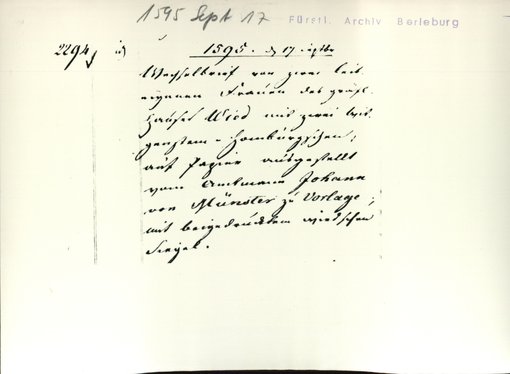 1595 Sept 17 Fürstl. Archiv Berleburg
2294
1595. d 17. Septbr
Wechselbrief von zwei leib
eigenen Frauen des gräfl.
Hauses Wied mit zwei Witt
genstein-Homburgschen;
auf Papier ausgestellt
vom Amtmann Johann
von Münster zu Vorlage;
mit beigedrucktem wiedschen
Siegel.